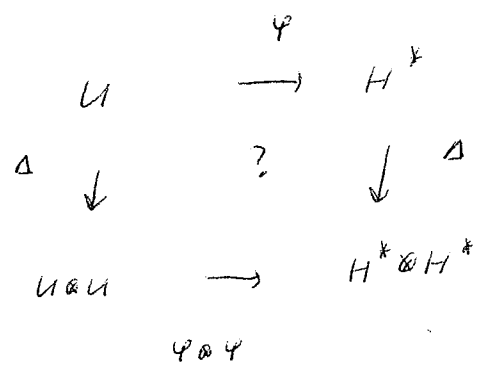 φ
U → H*
Δ ↓ ? ↓ Δ
U⊗U → H*⊗H*
φ⊗φ